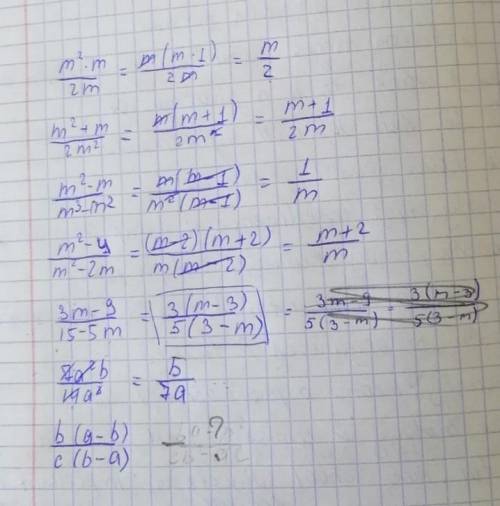 m²·m / 2m = m(m·1) / 2m = m / 2
m²+m / 2m² = m(m+1) / 2m² = m+1 / 2m
m²-m / m³-m² = m(m-1) / m²(m-1) = 1 / m
m²-4 / m²-2m = (m-2)(m+2) / m(m-2) = m+2 / m
3m-9 / 15-5m = 3(m-3) / 5(3-m) = 3m-9 / 5(3-m) = 3(m-3) / 5(3-m)
a²b / 14a³ = b / 7a
b(a-b) / c(b-a) - ?